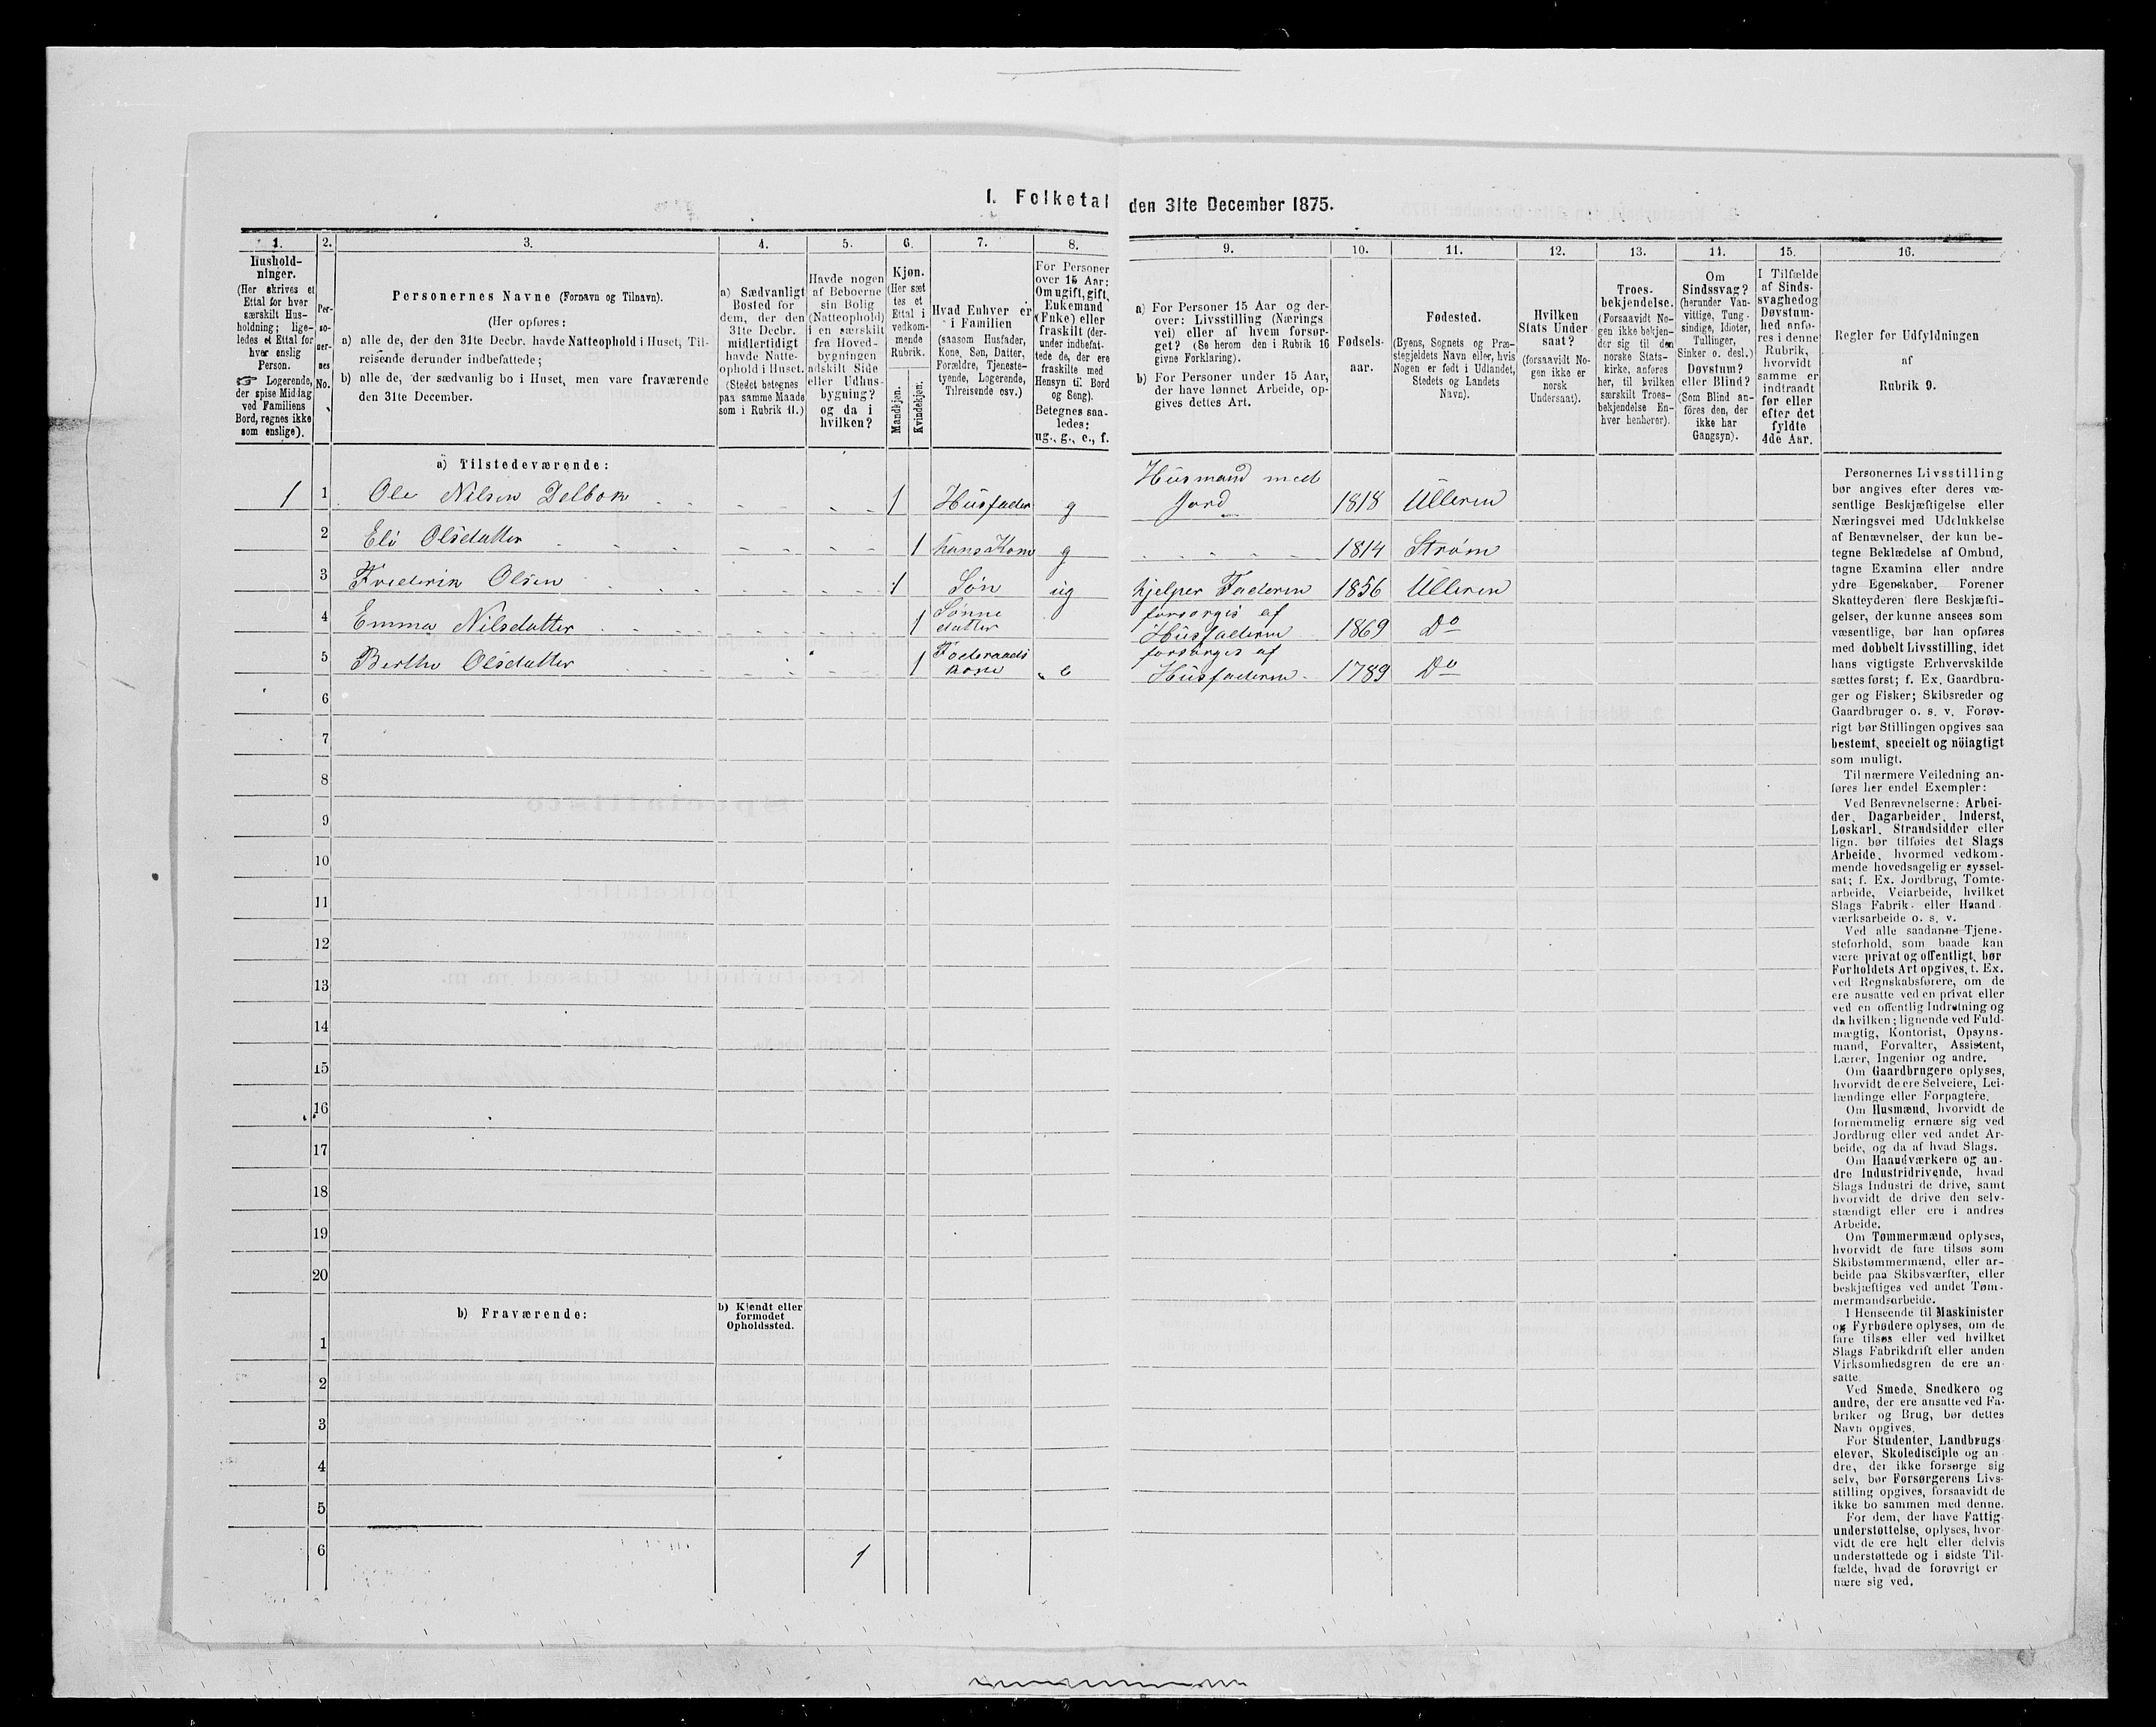 I. Folketal den 31te December 1875.
1. 2. 3. 4. 5. 6. 7. 8. 9. 10. 11. 12. 13. 14. 15. 16.
Hushold-
ninger.
(Her skrives et
Ettal for hver
særskilt Hus-
holdning; lige-
ledes et Ettal for
hver enslig
Person.
☞ Logerende,
der spise Middag
ved Familiens
Bord, regnes ikke
som enslige).
Per-
so-
ner-
nes
No.
Personernes Navne (Fornavn og Tilnavn).
(Her opføres:
a) alle de, der den 31te Decbr. havde Natteophold i Huset, Til-
reisende derunder indbefattede;
b) alle de, der sædvanlig bo i Huset, men vare fraværende
den 31te December.
a) Sædvanligt
Bosted for
dem, der den
31te Decbr.
midlertidigt
havde Natte-
ophold i Huset.
(Stedet betegnes
paa samme Maade
som i Rubrik 11.)
Havde nogen
af Beboerne
sin Bolig
(Natteophold)
i en særskilt
fra Hoved-
bygningen
adskilt Side
eller Udhus-
bygning?
og da i
hvilken?
Kjøn.
(Her sæt
tes et
Ettal i
vedkom-
mende
Rubrik.
Mandkjøn.
Kvindekjøn.
Hvad Enhver er
i Familien
(saasom Husfader,
Kone, Søn, Datter,
Forældre, Tjeneste-
tyende, Logerende,
Tilreisende osv.)
For Personer
over 15 Aar:
Om ugift, gift,
Enkemand
(Enke) eller
fraskilt (der-
under indbefat-
tede de, der ere
fraskilte med
Hensyn til Bord
og Seng).
Betegnes saa-
ledes:
ug., g., e., f.
a) For Personer 15 Aar og der-
over: Livsstilling (Nærings
vei) eller af hvem forsør-
get? (Se herom den i Rubrik 16
givne Forklaring).
b) For Personer under 15 Aar,
der have lønnet Arbeide, op-
gives dettes Art.
Fødsels-
aar.
Fødested.
(Byens, Sognets og Præ-
stegjeldets Navn eller, hvis
Nogen er født i Udlandet,
Stedets og Landets
Navn).
Hvilken
Stats Under
saat?
(forsaavidt No-
gen ikke er
norsk
Undersaat).
Troes-
bekjendelse.
(Forsaavidt No-
gen ikke bekjen-
der sig til den
norske Stats-
kirke, anføres
her, til hvilken
særskilt Troes-
bekjendelse En-
hver henhører).
Om
Sindssvag?
(herunder Van-
vittige, Tung-
sindige, Idioter,
Tullinger,
Sinker o. desl.)
Døvstum?
eller Blind?
(Som Blind an-
føres den, der
ikke har
Gangsyn).
I Tilfælde
af Sinds-
svaghed og
Døvstum-
hed anfø-
res i denne
Rubrik,
hvorvidt
samme er
indtraadt
før eller
efter det
fyldte
4de Aar.
Regler for Udfyldningen
af
Rubrik 9.
a) Tilstedeværende:
1 1 Ole Nilsen Delbok 1 Husfader g Husmand med Jord 1818 Ulleren
2 Eli Olsdatter 1 hans Kone g 1814 Strøm
3 Frederik Olsen 1 Søn ug hjelper Faderen 1856 Ulleren
4 Emma Nilsdatter 1 Sønne datter forsørges af Husfaderen 1869 Do
5 Berthe Olsdatter 1 Foderaads kone e forsørges af Husfaderen 1789 Do
6
7
8
9
10
11
12
13
14
15
16
17
18
19
20
b) Fraværende:
b) Kjendt eller
formodet
Opholdssted.
1
2
3
4
5
6
1
Personernes Livsstilling
bør angives efter deres væ-
sentlige Beskjæftigelse eller
Næringsvei med Udelukkelse
af Benævnelser, der kun be-
tegne Beklædelse af Ombud,
tagne Examina eller andre
ydre Egenskaber. Forener
Skatteyderen flere Beskjæfti-
gelser, der kunne ansees som
væsentlige, bør han opføres
med dobbelt Livsstilling, idet
hans vigtigste Erhvervskilde
sættes først; f. Ex. Gaardbru-
ger og Fisker; Skibsreder og
Gaardbruger o. s. v. Forøv-
rigt bør Stillingen opgives saa
bestemt, specielt og nöiagtigt
som muligt.
Til nærmere Veiledning an-
føres her endel Exempler:
Ved Benævnelserne: Arbei-
der, Dagarbeider, Inderst,
Løskarl, Strandsidder eller
lign. bør tilføies det Slags
Arbeide, hvormed vedkom-
mende hovedsagelig er syssel-
sat; f. Ex. Jordbrug, Tomte-
arbeide, Veiarbeide, hvilket
Slags Fabrik- eller Haand-
værksarbeide o. s. v.
Ved alle saadanne Tjene-
steforhold, som baade kan
være privat og offentligt, bør
Forholdets Art opgives, t. Ex.
ved Regnskabsførere, om de
ere ansatte ved en privat eller
ved en offentlig Indretning og
da hvilken; lignende ved Fuld-
mægtig, Kontorist, Opsyns-
mand, Forvalter, Assistent,
Lærer, Ingeniør og andre.
Om Gaardbrugere oplyses,
hvorvidt de ere Selveiere, Lei-
lændinge eller Forpagtere.
Om Husmænd, hvorvidt de
fornemmelig ernære sig ved
Jordbrug eller ved andet Ar-
beide, og da af hvad Slags.
Om Haandværkere og an-
dre Industridrivende, hvad
Slags Industri de drive, samt
hvorvidt de drive den selv-
stændigt eller ere i andres
Arbeide.
Om Tømmermænd oplyses,
hvorvidt de fare tilsøs som
Skibstømmermænd, eller ar-
beide paa Skibsværfter, eller
beskjæftiges ved andet Tøm-
mermandsarbeide.
I Henseende til Maskinister
og Fyrbødere oplyses, om de
fare tilsøs eller ved hvilket
Slags Fabrikdrift eller anden
Virksomhedsgren de ere an-
satte.
Ved Smede, Snedkere og
andre, der ere ansatte ved Fa-
briker og Brug, bør dettes
Navn opgives.
For Studenter, Landbrugs
elever, Skoledisciple og an
dre, der ikke forsørge sig
selv, bør Forsørgerens Livs-
stilling opgives, forsaavidt de
ikke bo sammen med denne.
For dem, der have Fattig-
understøttelse, oplyses, hvor-
vidt de ere helt eller delvis
understøttede og i sidste Til-
fælde, hvad de forøvrigt er
nære sig ved.